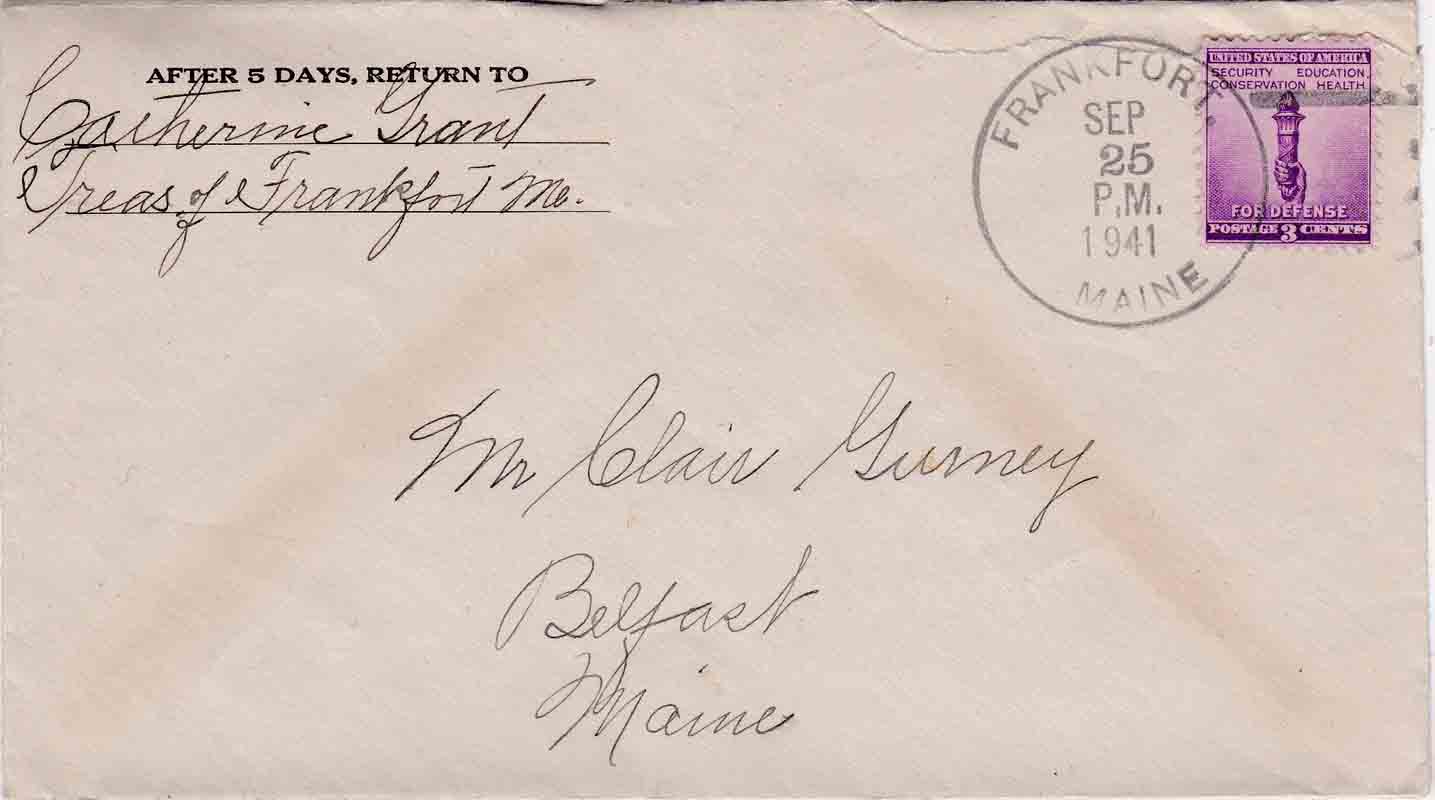 AFTER 5 DAYS, RETURN TO
Catherine Grant
Treas. of Frankfort Me.
FRANKFORT.
SEP
25
P.M.
1941
MAINE
UNITED STATES OF AMERICA
SECURITY EDUCATION
CONSERVATION HEALTH
FOR DEFENSE
POSTAGE 3 CENTS
Mr Clair Gurney
Belfast
Maine